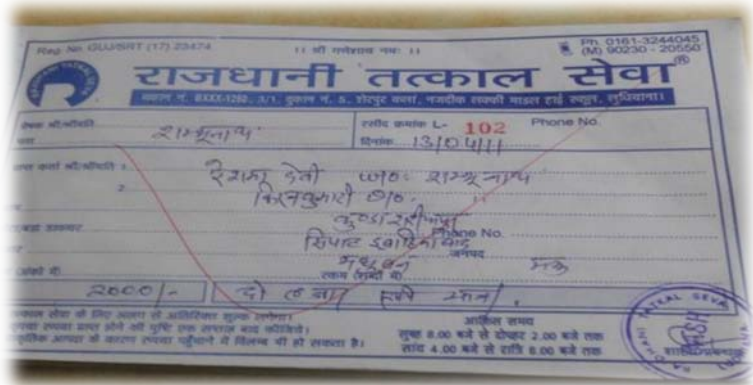 Reg No GUJ/SRT (17) 23474
।। श्री गणेशाय नमः ।।
Ph. 0161-3244045
(M) 90230 - 20550
राजधानी तत्काल सेवा®
मकान नं. BXXX-1260, 3/1, दुकान नं. 5, शेरपुर कलां, नजदीक लक्की माडल हाई स्कूल, लुधियाना।
प्रेषक श्री/श्रीमति शम्भूनाथ
रसीद क्रमांक L- 102 Phone No.
दिनांक 13/04/11
प्राप्त कर्ता श्री/श्रीमति 1. रेशमा देवी W/o: शम्भूनाथ
2. किरनकुमारी
Phone No.
जनपद
रकम (शब्दों में)
(अंकों में)
2000/- दो हजार रूपये मात्र/.
तत्काल सेवा के लिए अलग से अतिरिक्त शुल्क लगेगा।
रुपया प्राप्त होने की पुष्टि एक सप्ताह बाद कीजिये।
आपदा के कारण रुपया पहुँचाने में विलम्ब भी हो सकता है।
आफिस समय
सुबह 8.00 बजे से दोपहर 2.00 बजे तक
सायं 4.00 बजे से रात्रि 8.00 बजे तक